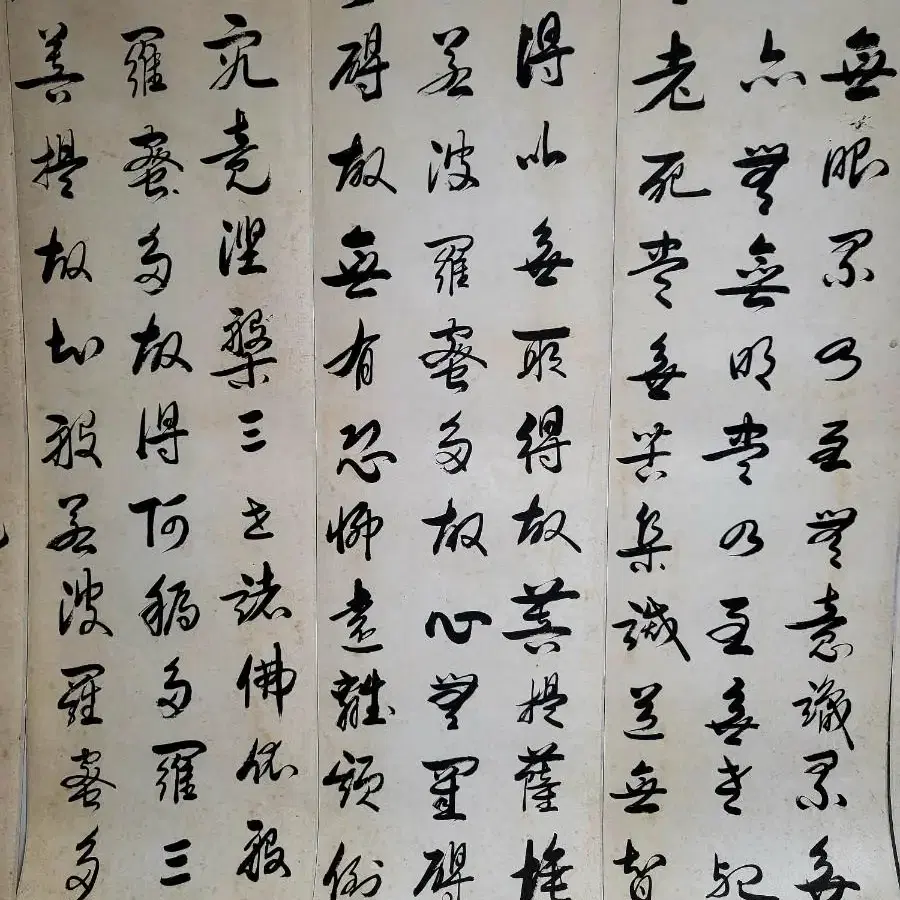 無眼界乃至無意識界無
亦無無明盡乃至無老死
老死盡無苦集滅道無智
得以無所得故菩提薩埵
若波羅蜜多故心無罣礙
礙故無有恐怖遠離顛倒
究竟涅槃三世諸佛依般
羅蜜多故得阿耨多羅三
菩提故知般若波羅蜜多